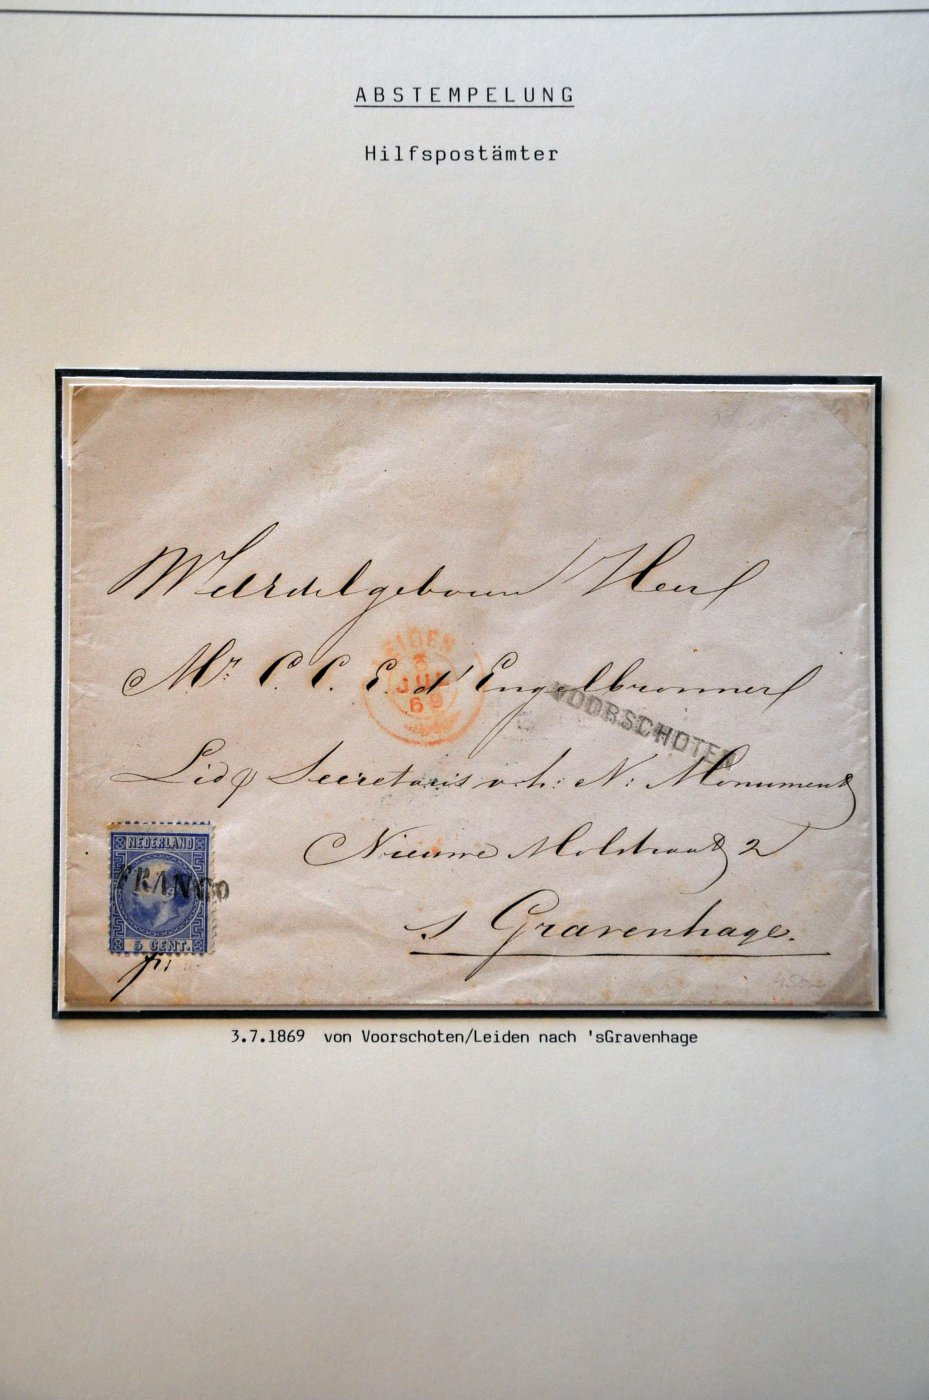 ABSTEMPELUNG
Hilfspostämter
Weledelgeboren Heer
Mr. C. C. E. d'Engelbronner
LEIDEN
3
JUL
69
VOORSCHOTEN
Lid & Secretaris v. h. N. Monument
Nieuwe Molstraat 2
s Gravenhage.
NEDERLAND
FRANCO
5 CENT.
3.7.1869 von Voorschoten/Leiden nach 'sGravenhage